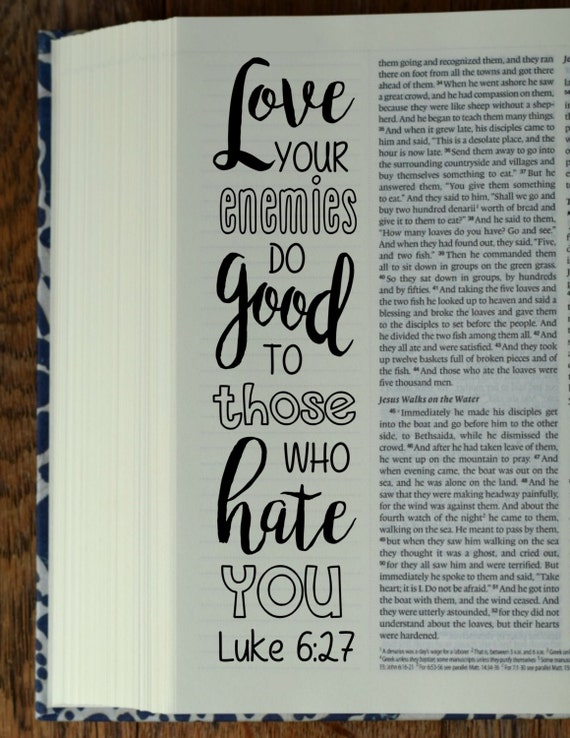 Love
YOUR
enemies
DO
good
TO
those
WHO
hate
YOU
Luke 6:27
them going and recognized them, and they ran
there on foot from all the towns and got there
ahead of them. 34 When he went ashore he saw
a great crowd, and he had compassion on them,
because they were like sheep without a shep-
herd. And he began to teach them many things.
35 And when it grew late, his disciples came to
him and said, "This is a desolate place, and the
hour is now late. 36 Send them away to go into
the surrounding countryside and villages and
buy themselves something to eat." 37 But he
answered them, "You give them something
to eat." And they said to him, "Shall we go and
buy two hundred denarii¹ worth of bread and
give it to them to eat?" 38 And he said to them,
"How many loaves do you have? Go and see."
And when they had found out, they said, "Five,
and two fish." 39 Then he commanded them
all to sit down in groups on the green grass.
40 So they sat down in groups, by hundreds
and by fifties. 41 And taking the five loaves and
the two fish he looked up to heaven and said a
blessing and broke the loaves and gave them
to the disciples to set before the people. And
he divided the two fish among them all. 42 And
they all ate and were satisfied. 43 And they took
up twelve baskets full of broken pieces and of
the fish. 44 And those who ate the loaves were
five thousand men.
Jesus Walks on the Water
45 Immediately he made his disciples get
into the boat and go before him to the other
side, to Bethsaida, while he dismissed the
crowd. 46 And after he had taken leave of them,
he went up on the mountain to pray. 47 And
when evening came, the boat was out on the
sea, and he was alone on the land. 48 And he
saw that they were making headway painfully,
for the wind was against them. And about the
fourth watch of the night² he came to them,
walking on the sea. He meant to pass by them,
49 but when they saw him walking on the sea
they thought it was a ghost, and cried out,
50 for they all saw him and were terrified. But
immediately he spoke to them and said, "Take
heart; it is I. Do not be afraid." 51 And he got into
the boat with them, and the wind ceased. And
they were utterly astounded, 52 for they did not
understand about the loaves, but their hearts
were hardened.